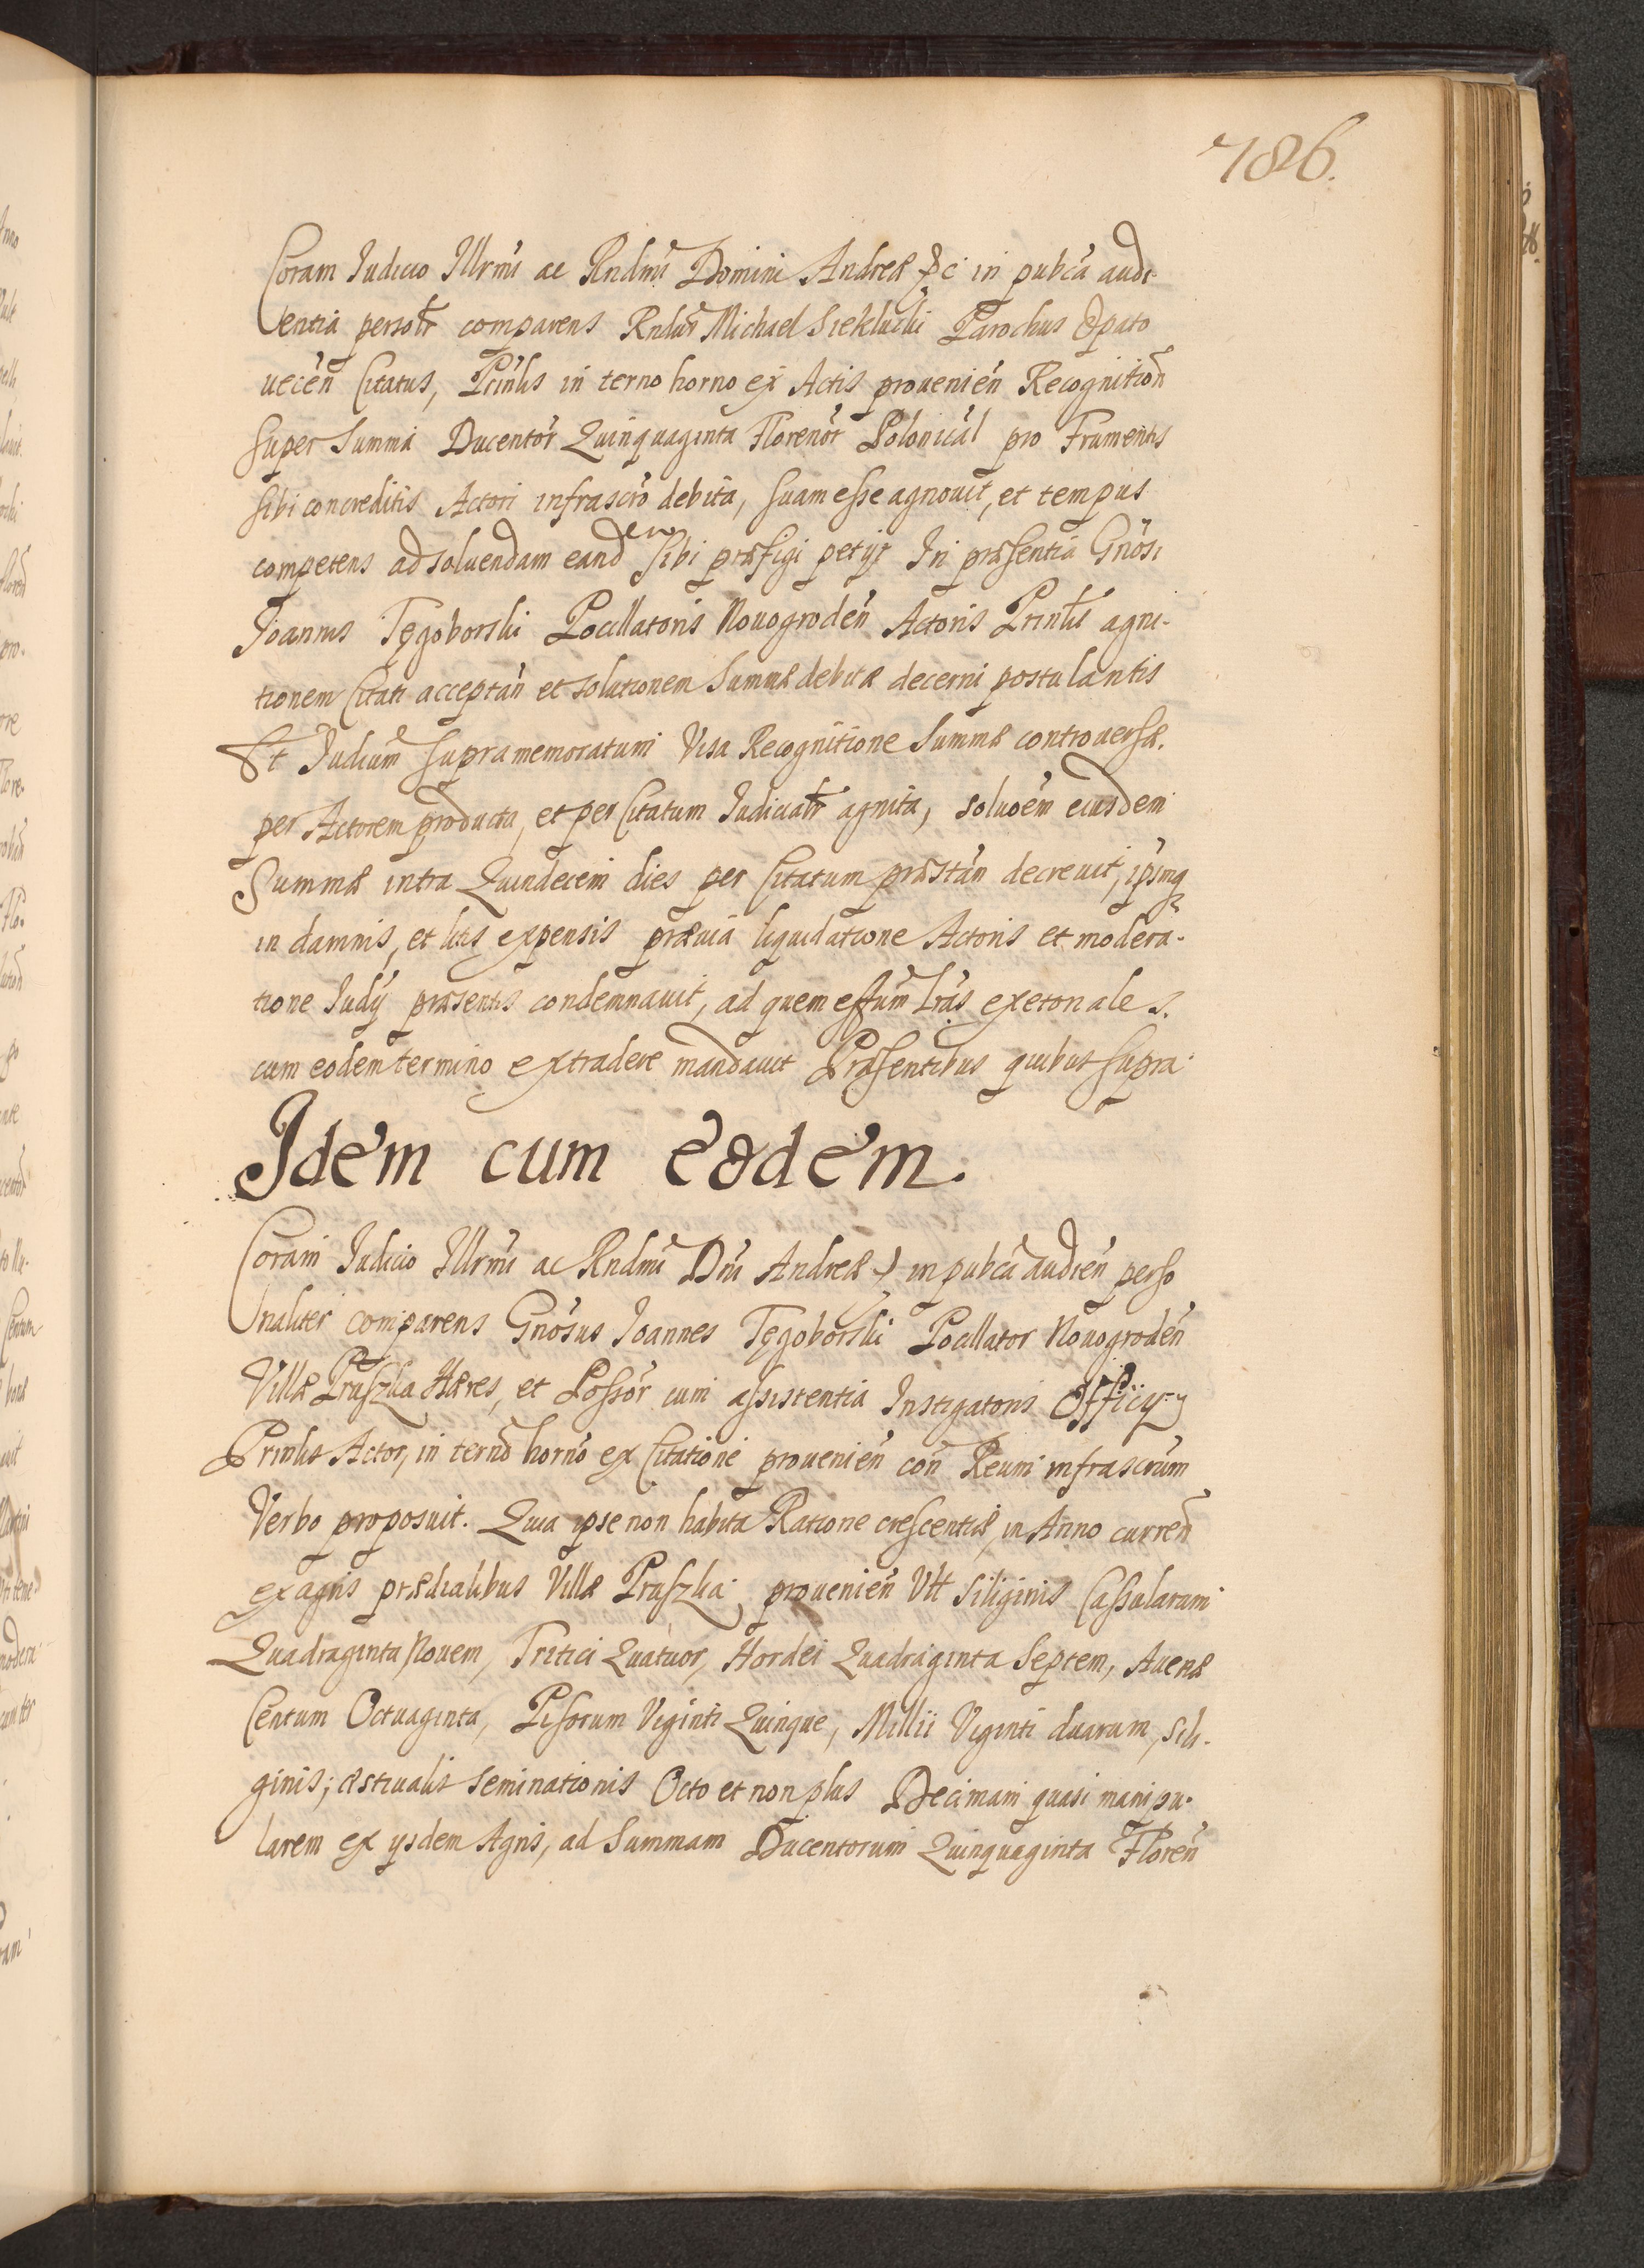 786.
Coram Iudicio Illrmi ac Rndmi Domini Andreæ &c in pubca audi-
entia persolr comparens Rndus Michael Siekluchi Parochus Opato
uecen Citatus, Prinlis in terno horno ex Actis prouenien Recognition
super Summa Ducentor Quinquaginta Florenor Polonical pro Frumentis
sibi concreditis Actori infrascro debita, suam esse agnouit, et tempus
competens ad soluendam eandem sibi præfigi petijt In præsentia Gnosi
Joannis Tęgoborski Pocillatoris Nouogroden Actoris Prinlis agni-
tionem Citati acceptan et solutionem Summæ debitæ decerni postulantis
Et Iudicium supramemoratum Visa Recognitione Summæ controuersæ.
per Actorem producta, et per Citatum Iudicialr agnita, soluoem eiusdem
Summæ intra Quindecem dies per Citatum præstan decreuit, ipsmq
in damnis, et litis expensis præuia liquidatione Actoris et modera-
tione Iudij præsentis condemnauit, ad quem effum lras exetonales.
cum eodem termino extradere mandauit Præsentibus quibus supra
Idem cum eodem.
Coram Iudicio Illrmi ac Rndmi Dni Andreæ in pubca audien perso
naliter comparens Gnosus Ioannes Tęgoborski Pocillator Nouogroden
Villæ Pruszka Hæres, et Possor cum assistentia Instigatoris Officij
Prinlis Actor, in terno horno ex Citatione prouenien con Reum infrascrum
Verbo proposuit. Quia ipse non habita Ratione crescentiæ, in Anno curren
ex agris prædialibus Villæ Pruszka prouenien Vlt Siliginis Cassularum
Quadraginta Nouem, Tritici Quatuor, Hordei Quadraginta Septem, Auenæ
Centum Octuaginta, Pisorum Viginti Quinque, Millii Viginti duarum, Sili-
ginis; æstiualis seminationis Octo et non plus Decimam quasi manipu-
larem ex ysdem Agris, ad Summam Ducentorum Quinquaginta Floren